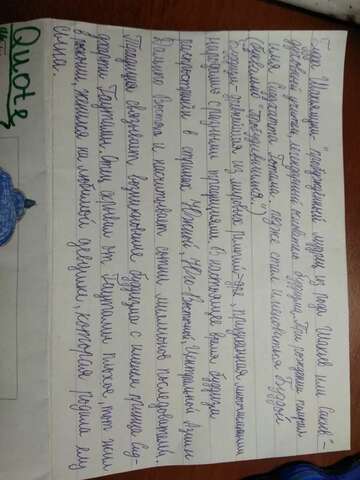 Quote
Будда Шакьямуни "пробужденный мудрец из рода Шакьев или Сакьев" -
духовный учитель, легендарный основатель буддизма. При рождении получил
имя Сиддхаттха Готама, позже стал именоваться Буддой
(буквально "пробудившийся").
Буддизм - древнейшая из мировых религий
народами с разными традициями. В настоящее время буддизм
распространён в странах Южной, Юго-Восточной, Центральной Азии и
Дальнего Востока и насчитывает сотни миллионов последователей.
Традиция связывает возникновение буддизма с именем принца Сид-
дхартхи Гаутамы. Отец скрывал от Гаутамы плохое, тот жил
в роскоши, женился на любимой девушке, которая родила ему
сына.